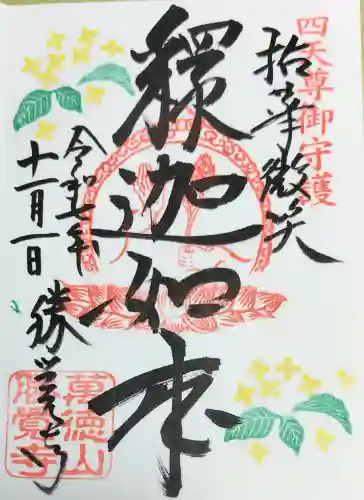 四天尊御守護
拈華微笑
釋迦如来
令和七年
十一月一日
勝覺寺
萬德山
勝覺寺